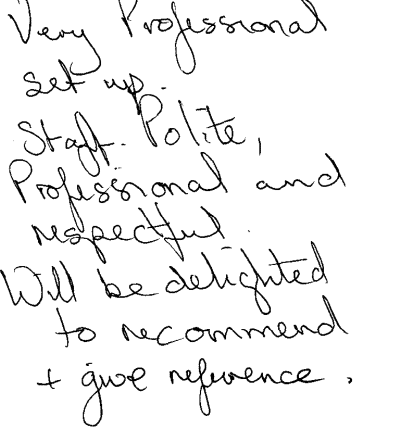 Very Professional
set up.
Staff. Polite,
Professional and
respectful.
Will be delighted
to recommend
+ give reference.